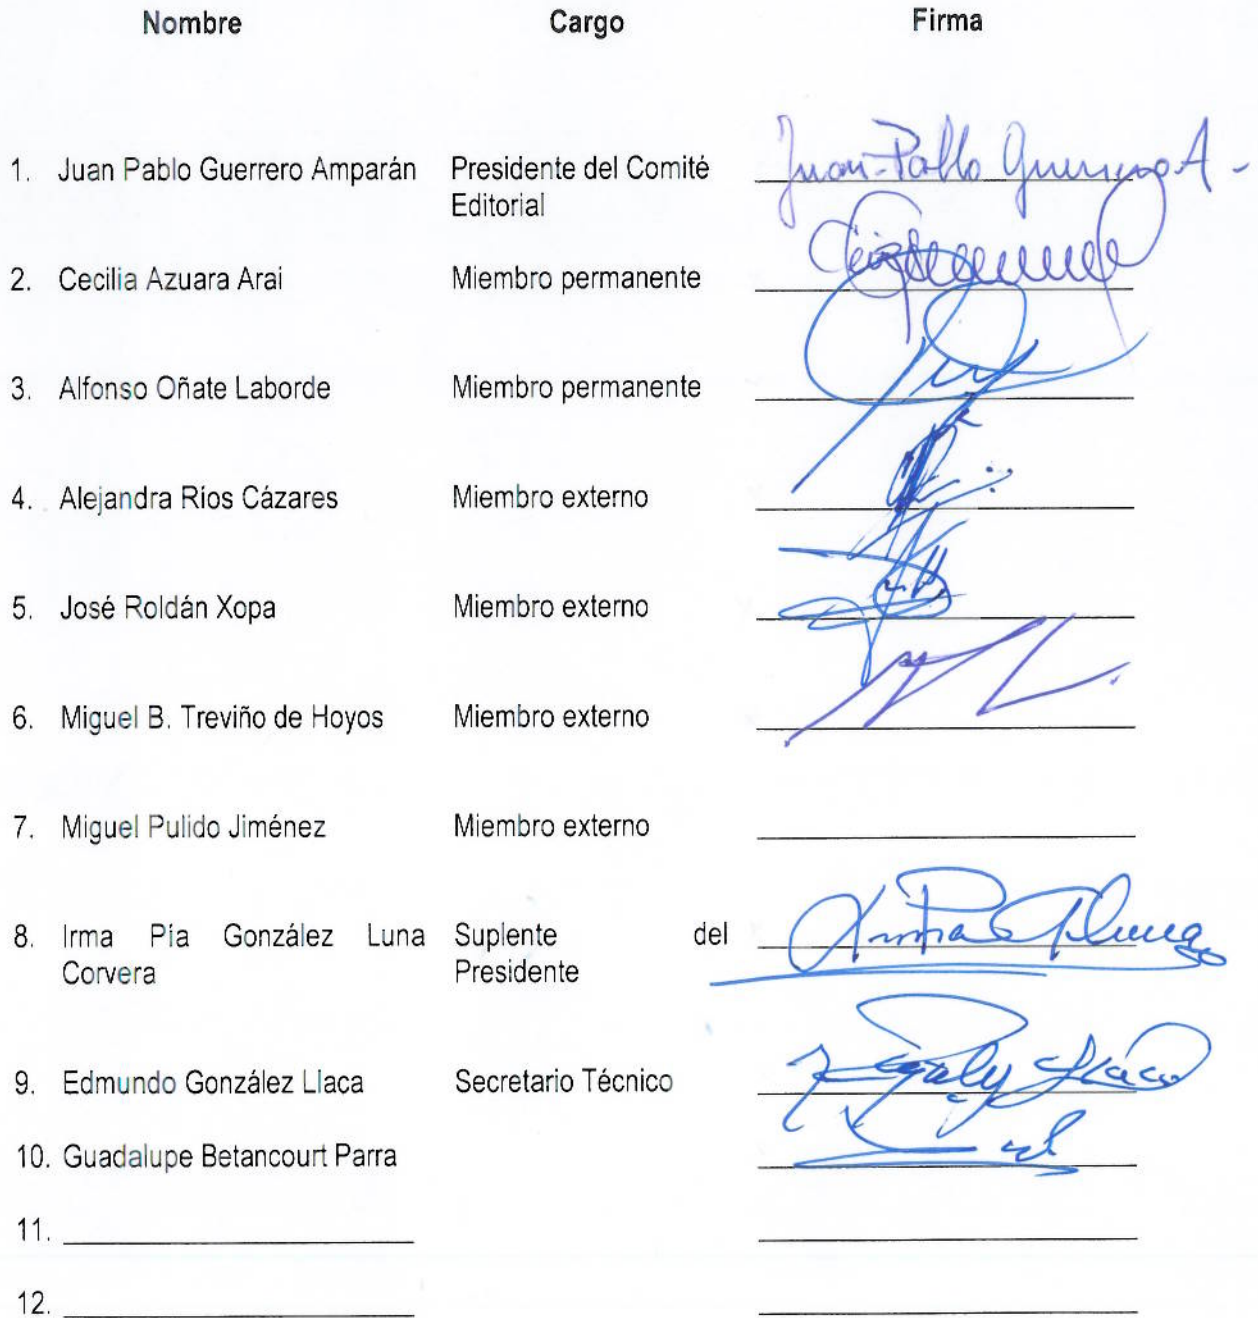 Nombre Cargo Firma
1. Juan Pablo Guerrero Amparán Presidente del Comité Juan-Pablo Guerrero A-
Editorial
2. Cecilia Azuara Arai Miembro permanente
3. Alfonso Oñate Laborde Miembro permanente
4. Alejandra Ríos Cázares Miembro externo
5. José Roldán Xopa Miembro externo
6. Miguel B. Treviño de Hoyos Miembro externo
7. Miguel Pulido Jiménez Miembro externo
8. Irma Pía González Luna Suplente del
Corvera Presidente
9. Edmundo González Llaca Secretario Técnico
10. Guadalupe Betancourt Parra
11.
12.